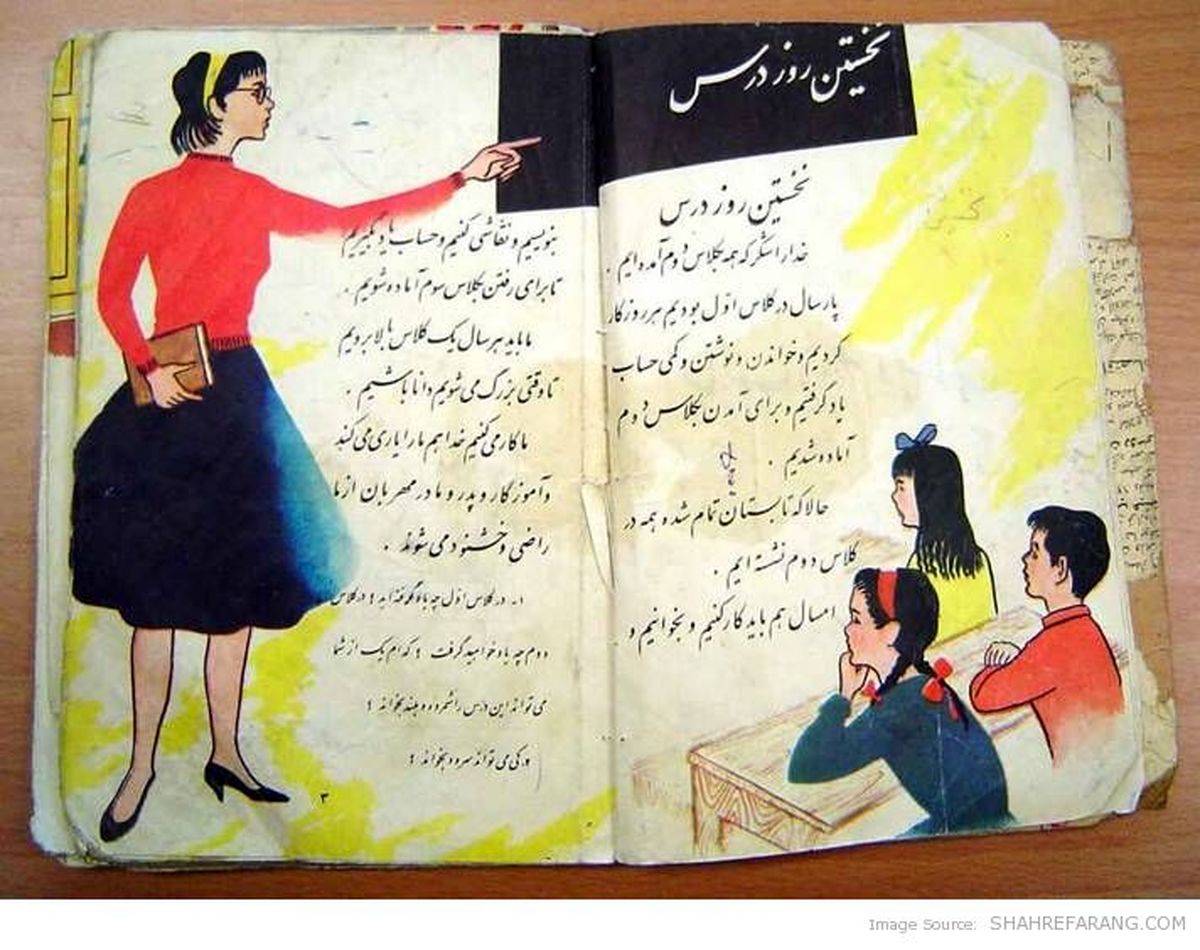 نخستین روز درس
نخستین روز درس
خدا را شکر که همه بکلاس دوم آمده ایم .
پارسال در کلاس اوّل بودیم هر روز کار
کردیم و خواندن و نوشتن و کمی حساب
یاد گرفتیم و برای آمدن بکلاس دوم
آماده شدیم .
حالا که تابستان تمام شده و همه در
کلاس دوم نشسته ایم .
امسال هم باید کار کنیم و بخوانیم و
بنویسیم و نقاشی کنیم و حساب یاد بگیریم
تا برای رفتن بکلاس سوم آماده شویم .
ما باید هر سال یک کلاس بالا برویم
تا وقتی بزرگ می شویم دانا باشیم .
ما کار می کنیم خدا هم ما را یاری می کند
و آموزگار و پدر و مادر مهربان از ما
راضی و خشنود می شوند .
۱ـ در کلاس اوّل چه یاد گرفته اید ؟ در کلاس
دوم چه یاد خواهید گرفت ؟ کدام یک از شما
می تواند این درس را شمرده و بلند بخواند ؟
و کی می تواند سرود بخواند ؟
۳
Image Source: SHAHREFARANG.COM